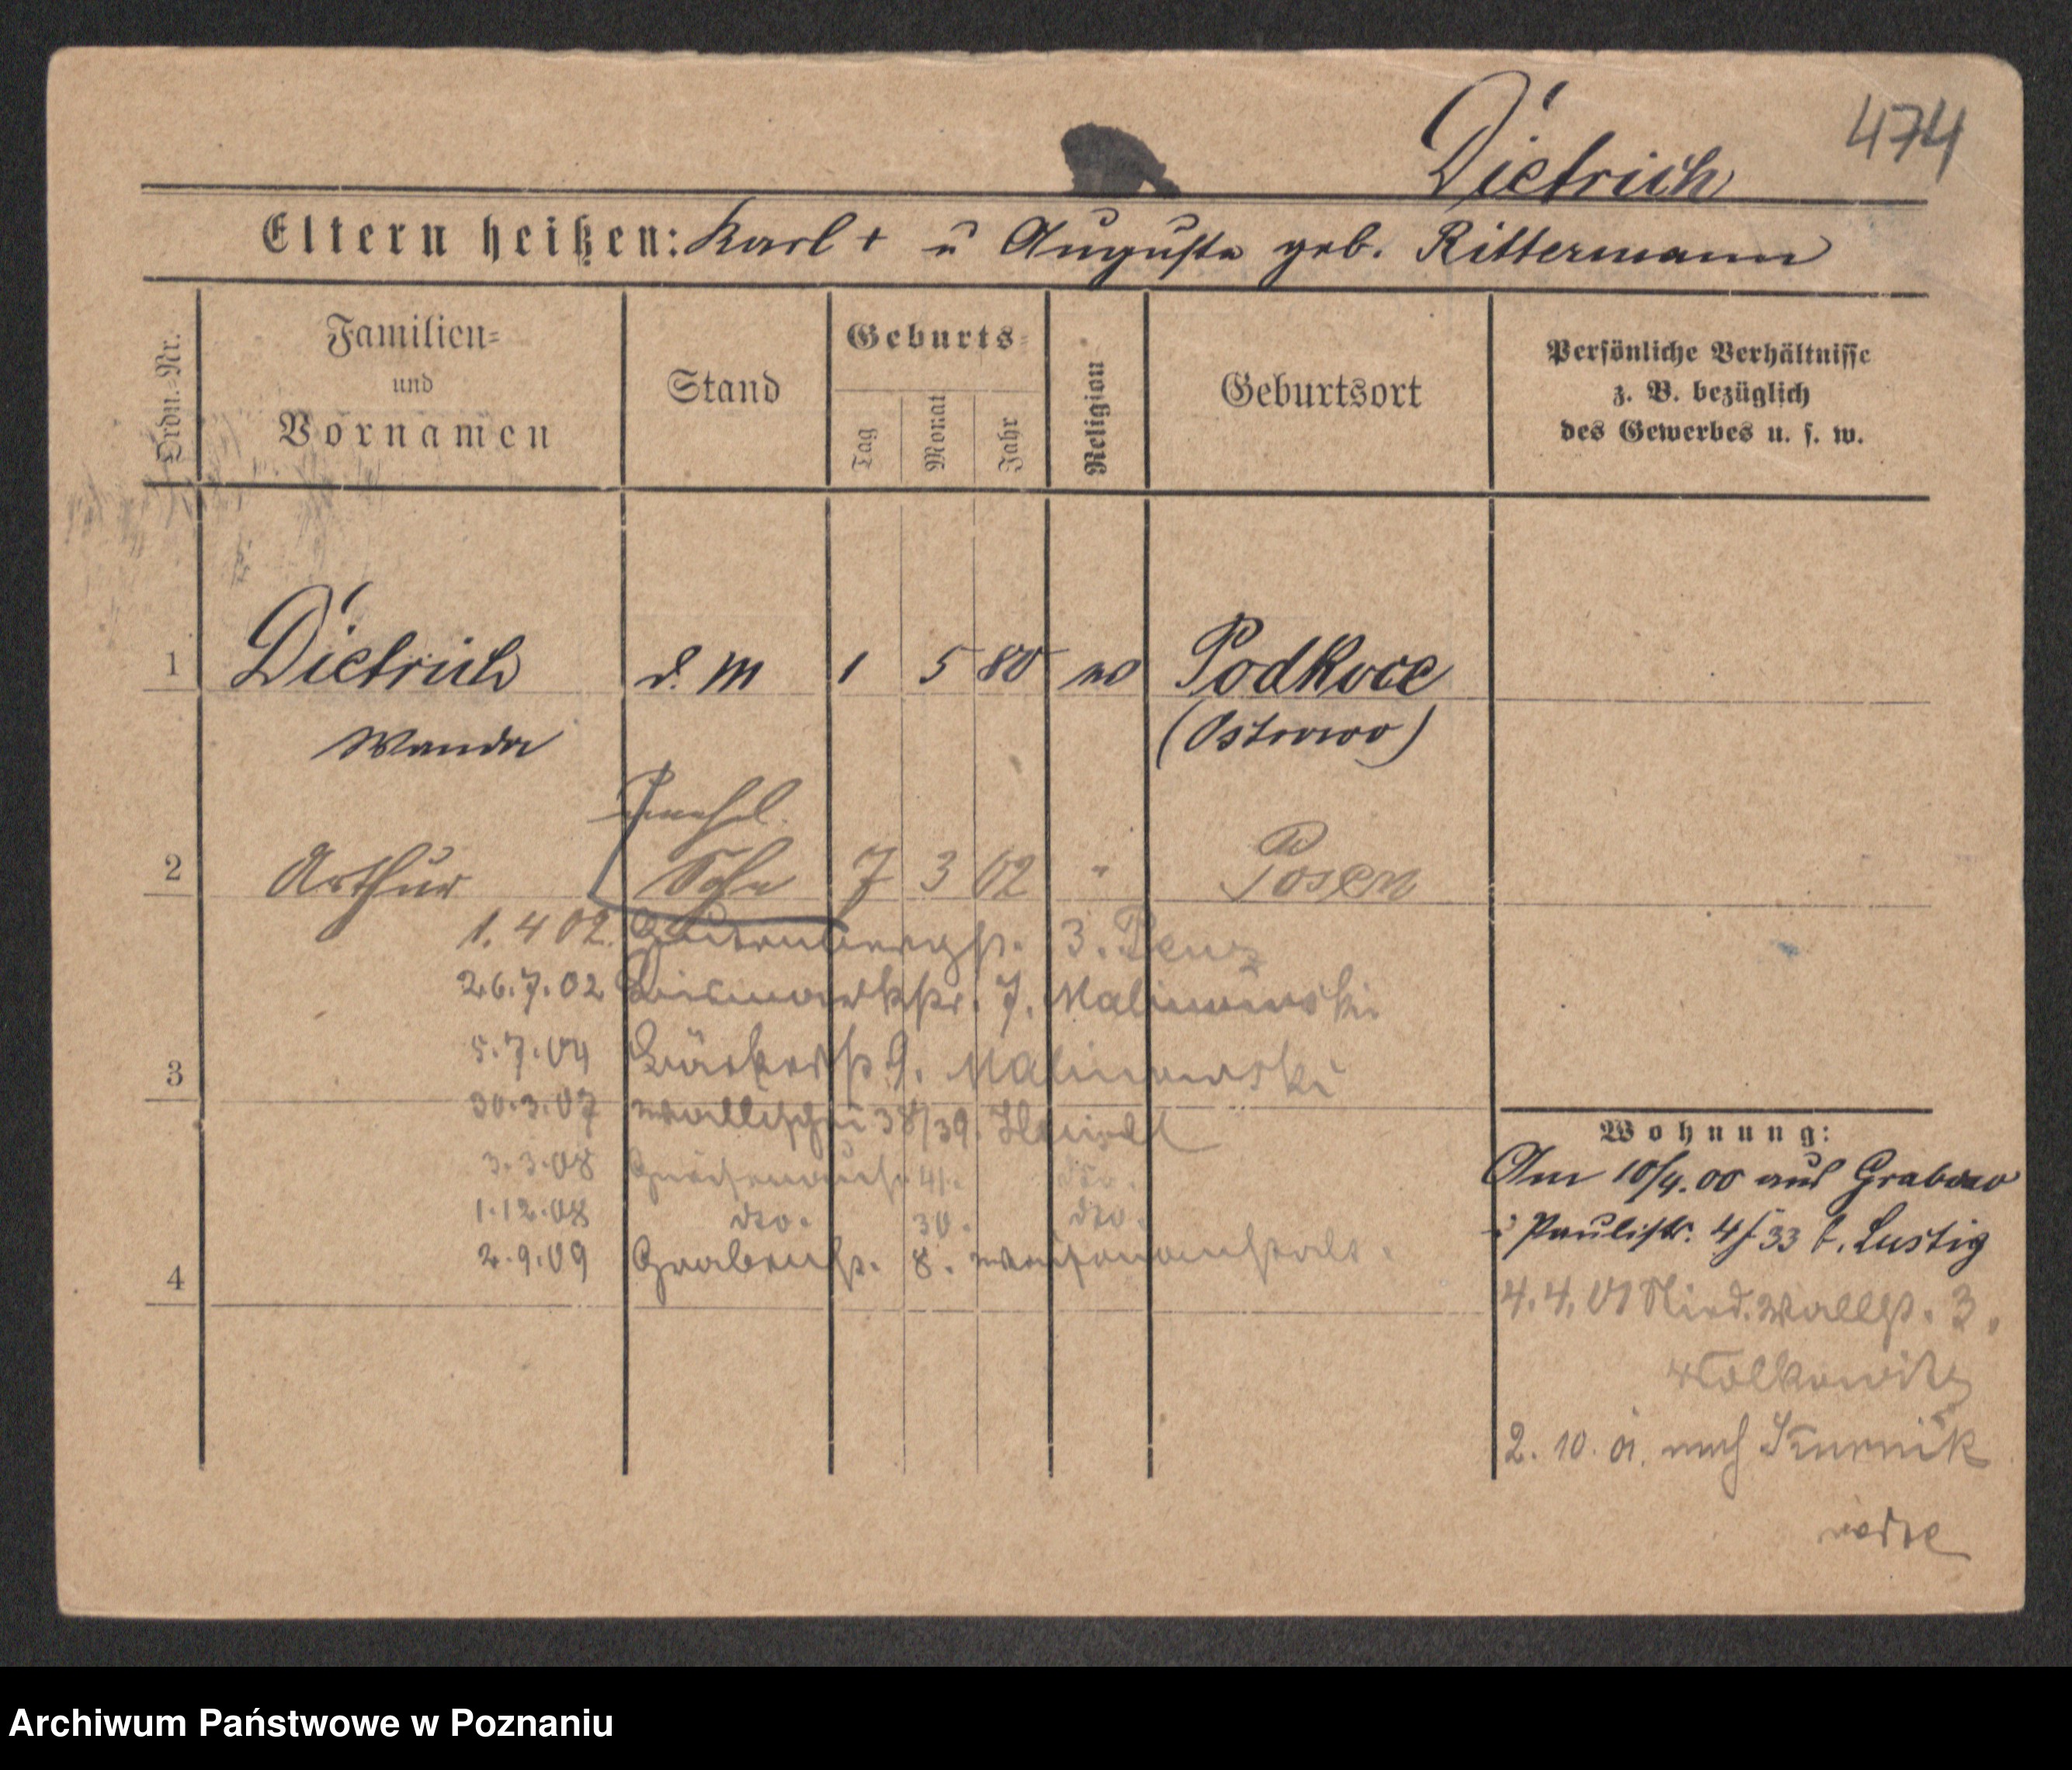 474
Dietrich
Eltern heißen: Karl + u Auguste geb. Rittermann
Ordn.-Nr.
Familien-
und
Vornamen
Stand
Geburts-
Tag
Monat
Jahr
Religion
Geburtsort
Persönliche Verhältnisse
z. B. bezüglich
des Gewerbes u. s. w.
1 Dietrich d. M 1 5 80 Podkoce
Wanda (Ostrowo)
unehel.
2 Arthur Sohn 7 3 02 " Posen
1.4 02. 3.
26.7.02 Bismarckstr. 7. Malinowski
3
5.7.04 Bäckerstr 9. Malinowski
30.3.07 Wallischei 38/39.
3.3.08 41. dto.
1.12.08 dto. 30. dto.
4
2.9.09 Grabenstr. 8.
Wohnung:
Am 10/9.00 aus Grabow
Paulistr. 4/ 33 b. Lustig
4.4.01 Nied. Wallstr. 3.
Wolkowitz
2. 10. 01. nach Kurnik
Archiwum Państwowe w Poznaniu